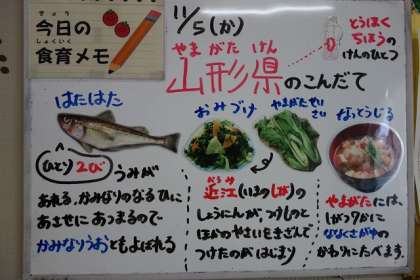 きょう
今日の
しょくいく
食育メモ
11/5(か)
やまがたけん
山形県のこんだて
とうほく
ちほうの
けんのひとつ
はたはた
ひとり2び
うみが
あれる、かみなりのなるひに
あさせに あつまるので
かみなりうおともよばれる
おみづけ
やまがたせいさい
近江(いまのしが)の
しょうにんが、つけしると
ほかのやさいをきざんで
つけたのが はじまり
なっとうじる
やまがたには、
1がつ7かに
ななくさがゆの
かわりにたべます。